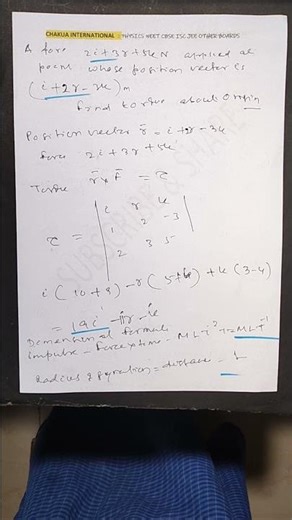 CHAKUA INTERNATIONAL : PHYSICS NEET CBSE ISC JEE OTHER BOARDS
A force 2i+3r+5k N applied at
point whose position vector is
(i+2r-3k)m
find torque about origin
Position vector r̄ = i+2r-3k
force 2i+3r+5k
Torque r̄xF̄ = τ
i r k
τ = 1 2 -3
2 3 5
i(10+9)-r(5+6)+k(3-4)
= 19i-11r-k
Demensional formula
impulse - force x time - MLT⁻²T=MLT⁻¹
Radius of gyration = distance - L
SUBSCRIBE & SHARE